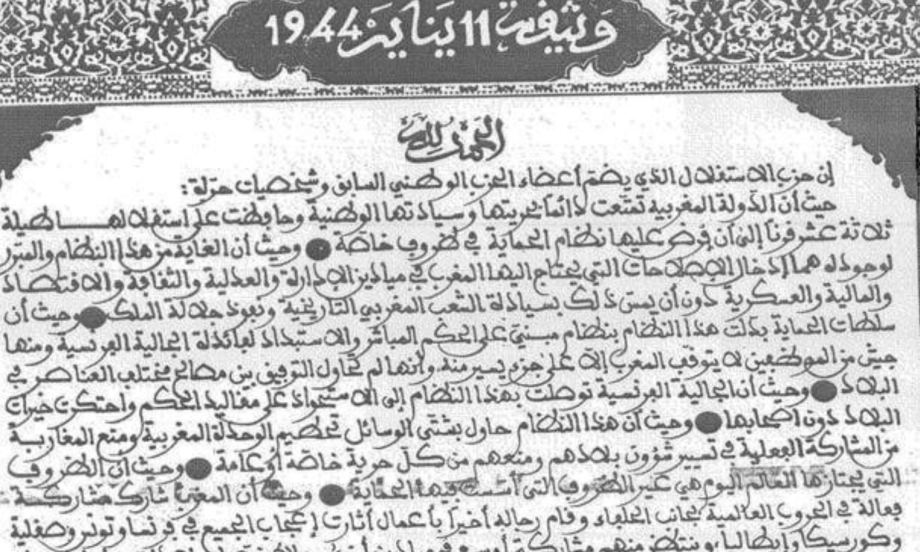 وثيقة 11 يناير 1944
الحمد لله
إن حزب الاستقلال الذي يضم أعضاء الحزب الوطني السابق وشخصيات حرة:
حيث أن الدولة المغربية تمتعت دائما بحريتها وسيادتها الوطنية وحافظت على استقلالها طيلة
ثلاثة عشر قرنا إلى أن فرض عليها نظام الحماية في ظروف خاصة ● وحيث أن الغاية من هذا النظام والمبرر
لوجوده هما إدخال الإصلاحات التي يحتاج اليها المغرب في ميادين الإدارة والعدلية والثقافة والاقتصاد
والمالية والعسكرية دون أن يمس ذلك بسيادة الشعب المغربي التاريخية ونفوذ جلالة الملك ● وحيث أن
سلطات الحماية بدلت هذا النظام بنظام مبني على الحكم المباشر والاستبداد لفائدة الجالية الفرنسية ومنها
جيش من الموظفين لا يتوقف المغرب إلا على جزء يسير منه وأنها لم تحاول التوفيق بين مصالح مختلف العناصر في
البلاد ● وحيث أن الجالية الفرنسية توصلت بهذا النظام إلى الاستحواذ على مقاليد الحكم واحتكرت خيرات
البلاد دون أصحابها ● وحيث أن هذا النظام حاول بشتى الوسائل تحطيم الوحدة المغربية ومنع المغاربة
من المشاركة الفعلية في تسيير شؤون بلادهم ومنعهم من كل حرية خاصة أو عامة ● وحيث أن الظروف
التي يجتازها العالم اليوم هي غير الظروف التي أسست فيها الحماية ● وحيث أن المغرب شارك مشاركة
فعالة في الحروب العالمية بجانب الحلفاء وقام رجاله أخيرا بأعمال أثارت إعجاب الجميع في فرنسا وتونس وصقلية
وكورسيكا وإيطاليا